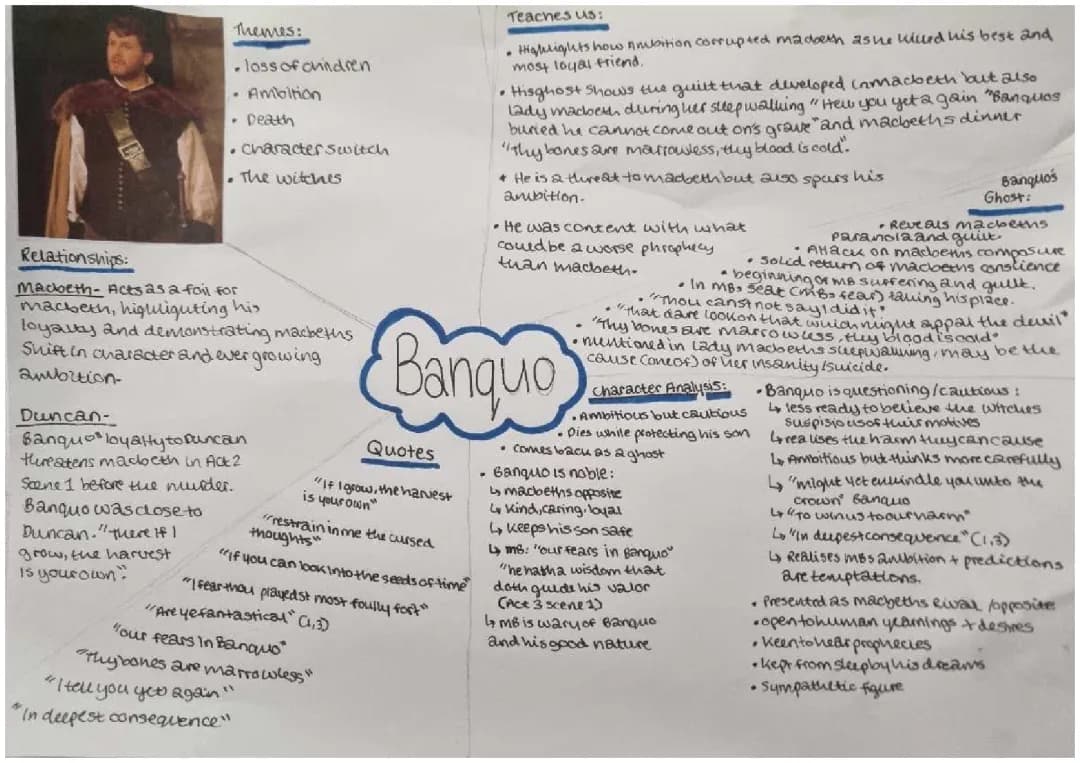 Themes:
• loss of children
• Ambition
• Death
• character switch
• The witches
Teaches us:
• Highlights how Ambition corrupted macbeth as he killed his best and
most loyal friend.
• His ghost shows the guilt that developed in macbeth but also
lady macbeth during her sleepwalking "I tell you yet again "Banquos
buried he cannot come out on's grave" and macbeths dinner
"Thy bones are marrowless, thy blood is cold".
• He is a threat to macbeth but also spurs his
ambition.
• He was content with what
could be a worse phrophecy
than macbeth-
Banquo's
Ghost:
• Reveals macbeths
Paranoia and guilt.
• Attack on macbeths composure
• Solid return of macbeths conscience
• beginning of MB suffering and guilt.
• In MBs seat (MBs fear) taking his place.
• "Thou canst not say I did it"
• "That dare look on that which might appal the devil"
• "Thy bones are marrowless, thy blood is cold"
• mentioned in lady Macbeths sleepwalking, may be the
cause (one of) of her insanity/suicide.
Relationships:
Macbeth- Acts as a foil for
macbeth, highlighting his
loyalty and demonstrating macbeths
Shift in character and ever growing
ambition-
Duncan-
Banquo" loyalty to Duncan
threatens macbeth in Act 2
Scene 1 before the murder.
Banquo was close to
Duncan. "There if I
grow, the harvest
is your own".
Banquo
Quotes
"If I grow, the harvest
is your own"
"restrain in me the cursed
thoughts"
"If you can look into the seeds of time"
"I fear thou playedst most foully for't"
"Are ye fantastical" (1,3)
"our fears in Banquo"
"Thy bones are marrowless"
"I tell you yet again"
"In deepest consequence"
Character Analysis:
• Ambitious but cautious
• Dies while protecting his son
• comes back as a ghost
• Banquo is noble:
↳ macbeths opposite
↳ Kind, caring, loyal
↳ Keeps his son safe
↳ MB: "our fears in Banquo"
"he hath a wisdom that
doth guide his valor
(Act 3 scene 1)
↳ MB is wary of Banquo
and his good nature
• Banquo is questioning/cautious:
↳ less ready to believe the witches
suspisious of their motives
↳ realises the harm they can cause
↳ Ambitious but thinks more carefully
↳ "might yet enkindle you unto the
crown" Banquo
↳ "To win us to our harm"
↳ "In deepest consequence" (1,3)
↳ Realises MBs ambition + predictions
are temptations.
• Presented as macbeths rival/opposite
• open to human yearnings + desires
• Keen to hear prophecies
• Kept from sleep by his dreams
• Sympathetic figure